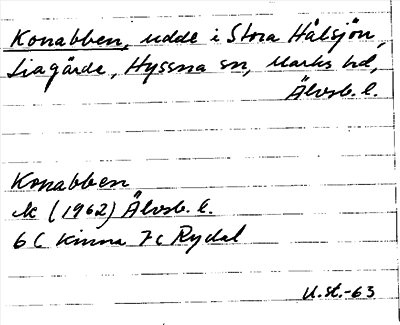 Konabben, udde i Stora Hålsjön,
Liagärde, Hyssna sn, Marks hd,
Älvsb. l.
Konabben
ek (1962) Älvsb. l.
6 C Kinna 7c Rydal
U.st.-63